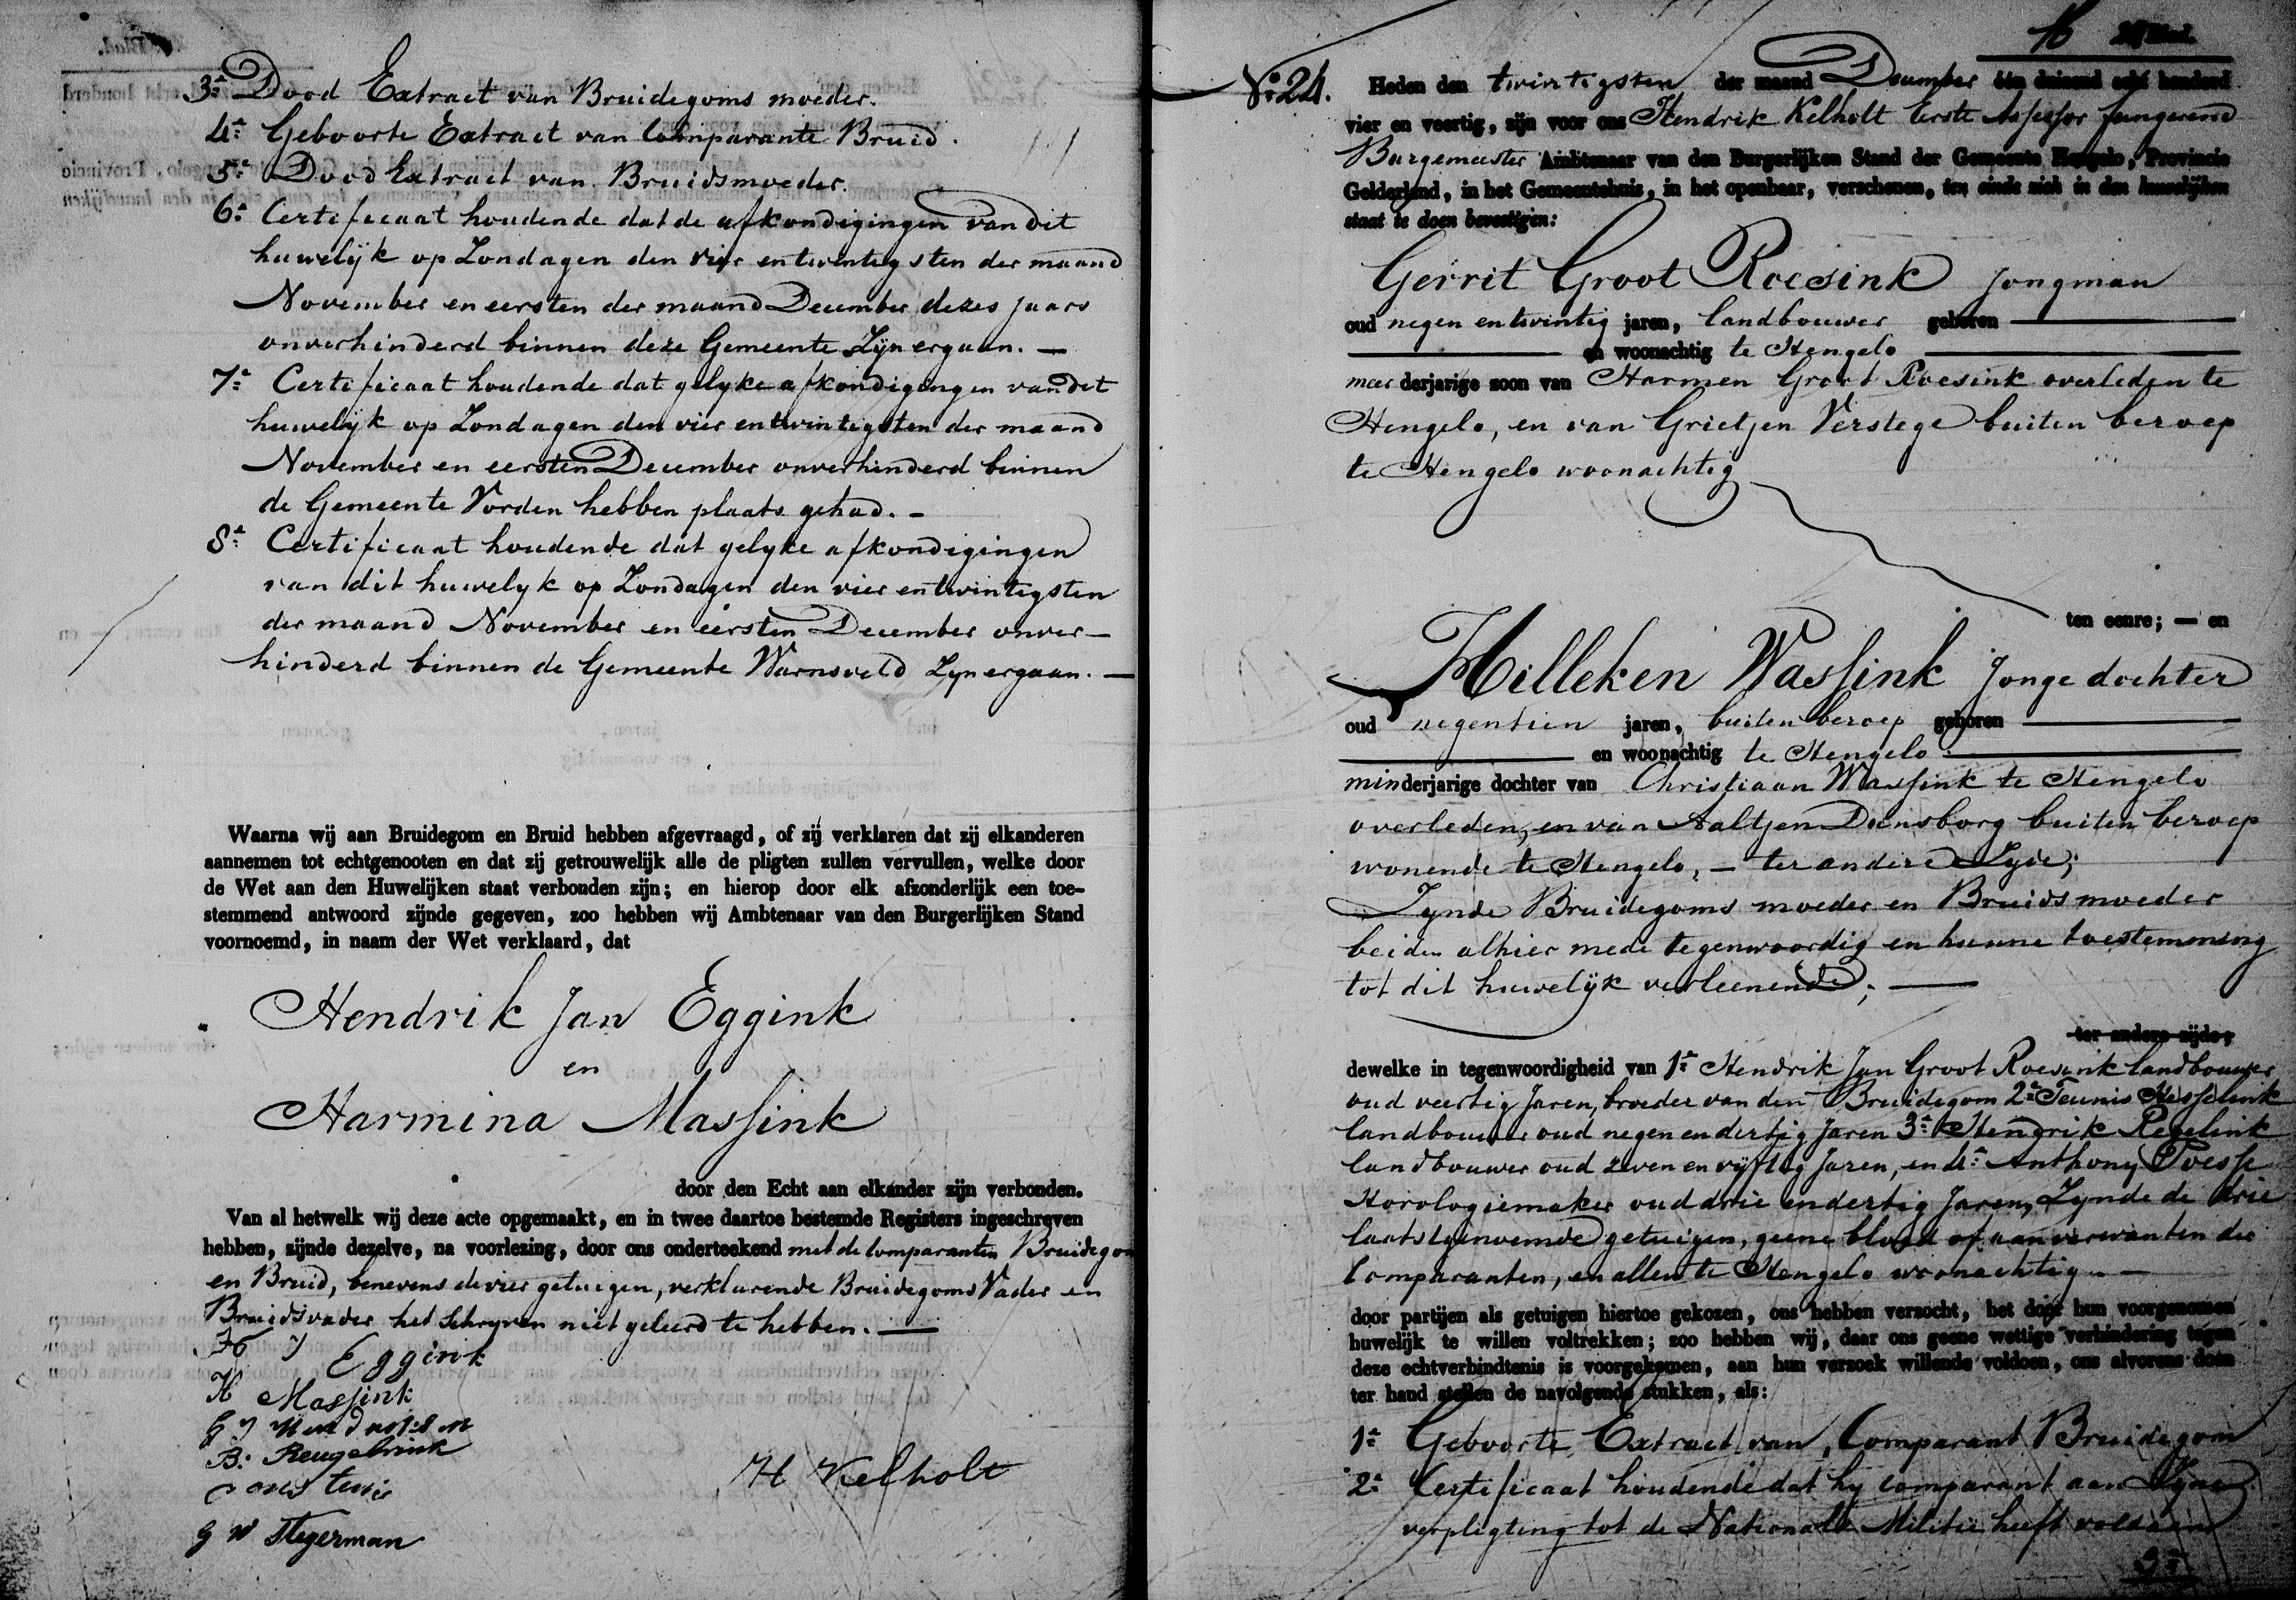 3e Dood Extract van Bruidegoms moeder.
4e Geboorte Extract van Comparante Bruid.
5e Dood Extract van Bruidsmoeder.
6e Certificaat houdende dat de afkondigingen van dit
huwelijk op Zondagen den vier en twentigsten der maand
November en eersten der maand December dezes jaars
onverhinderd binnen deze Gemeente Zijn ergaan. —
7e Certificaat houdende dat gelyke afkondigingen van dit
huwelijk op Zondagen den vier en twintigsten der maand
November en eersten December onverhinderd binnen
de Gemeente Vorden hebben plaats gehad. —
8e Certificaat houdende dat gelyke afkondigingen
van dit huwelyk op Zondagen den vier en twintigsten
der maand November en eersten December onver—
hinderd binnen de Gemeente Warnsveld Zyn ergaan. —
Waarna wij aan Bruidegom en Bruid hebben afgevraagd, of zij verklaren dat zij elkanderen
aannemen tot echtgenooten en dat zij getrouwelijk alle de pligten zullen vervullen, welke door
de Wet aan den Huwelijken staat verbonden zijn; en hierop door elk afzonderlijk een toe-
stemmend antwoord zijnde gegeven, zoo hebben wij Ambtenaar van den Burgerlijken Stand
voornoemd, in naam der Wet verklaard, dat
Hendrik Jan Eggink
en
Harmina Massink
door den Echt aan elkander zijn verbonden.
Van al hetwelk wij deze acte opgemaakt, en in twee daartoe bestemde Registers ingeschreven
hebben, zijnde dezelve, na voorlezing, door ons onderteekend met de Comparanten Bruidegom
en Bruid, benevens de vier getuigen, verklarende Bruidegoms Vader en
Bruidsvader het Schryven niet geleerd te hebben. —
H J Eggink
H Massink
B. Reugebrink
G W Stegerman
H Kelholt
16
No. 24. Heden den twintigsten der maand December één duizend acht honderd
vier en veertig, zijn voor ons Hendrik Kelholt Eerste Assessor fungerend
Burgemeester Ambtenaar van den Burgerlijken Stand der Gemeente Hengelo, Provincie
Gelderland, in het Gemeentehuis, in het openbaar, verschenen, ten einde zich in den huwelijken
staat te doen bevestigen:
Gerrit Groot Roesink jongman
oud negen en twintig jaren, landbouwer geboren —
— en woonachtig te Hengelo —
meerderjarige zoon van Harmen Groot Roesink overleden te
Hengelo, en van Grietjen Verstege buiten beroep
te Hengelo woonachtig
ten eenre; — en
Hilleken Wassink Jonge dochter
oud negentien jaren, buiten beroep geboren —
— en woonachtig te Hengelo —
minderjarige dochter van Christiaan Wassink te Hengelo
overleden, en van Aaltjen Dunsborg buiten beroep
wonende te Hengelo, — ter andere Zyde;
Zynde Bruidegoms moeder en Bruids moeder
beiden alhier mede tegenwoordig en hunne toestemming
tot dit huwelijk verleenende; —
ter andere zijde;
dewelke in tegenwoordigheid van 1e Hendrik Jan Groot Roesink landbouwer
oud veertig Jaren, broeder van den Bruidegom 2e Teunis Hesselink
landbouwer oud negen en dertig Jaren 3e Hendrik Regelink
landbouwer oud zeven en vijftig Jaren, en 4e Anthony Poesse
Horologiemaker oud drie en dertig Jaren, Zynde de drie
laatstgenoemde getuigen, geene bloed of aanverwanten der
Comparanten, en allen te Hengelo woonachtig. —
door partijen als getuigen hiertoe gekozen, ons hebben verzocht, het door hun voorgenomen
huwelijk te willen voltrekken; zoo hebben wij, daar ons geene wettige verhindering tegen
deze echtverbindtenis is voorgekomen, aan hun verzoek willende voldoen, ons alvorens doen
ter hand stellen de navolgende stukken, als:
1e Geboorte Extract van Comparant Bruidegom
2e Certificaat houdende dat hy comparant aan Zyne
verpligting tot de Nationale Militie heeft voldaan
3e